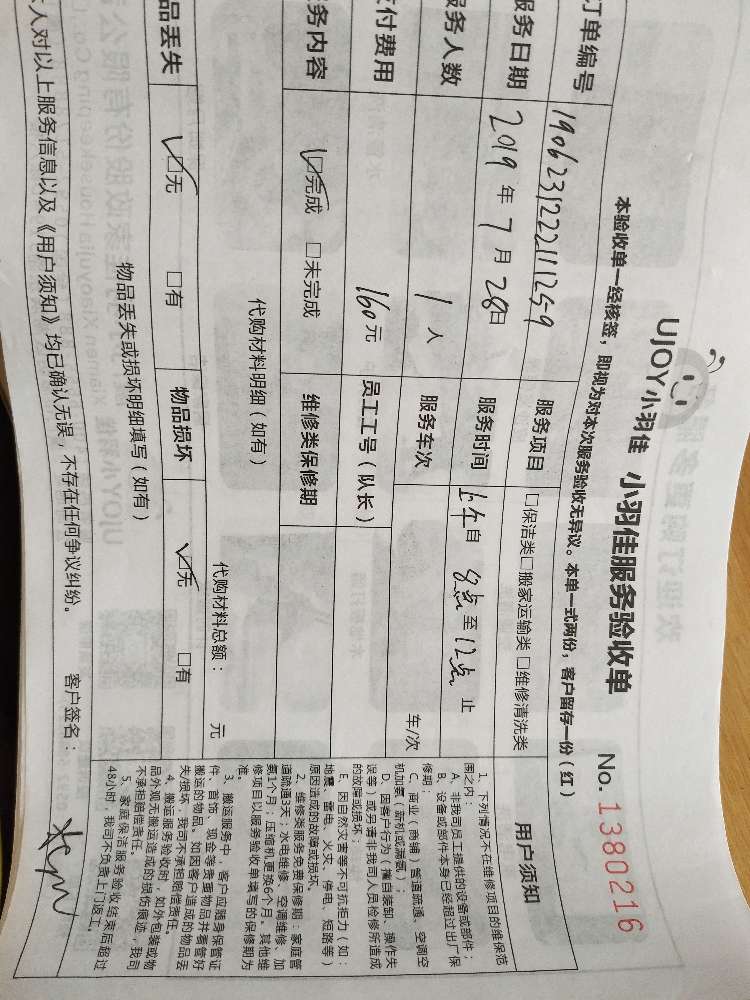 UJOY小羽佳 小羽佳服务验收单 No. 1380216
本验收单一经核签，即视为对本次服务验收无异议。本单一式两份，客户留存一份（红）
订单编号 服务项目 □保洁类□搬家运输类□维修清洗类 用户须知
服务日期 2019年7月28日 服务时间 上午自8点至12点止
服务人数 1人 服务车次 车/次
付费用 160元 员工工号（队长）
务内容 ☑完成 □未完成 维修类保修期
代购材料明细（如有） 代购材料总额： 元
品丢失 ☑无 □有 物品损坏 ☑无 □有
物品丢失或损坏明细填写（如有）
人对以上服务信息以及《用户须知》均已确认无误，不存在任何争议纠纷。 客户签名：
1、下列情况不在维修项目的维保范
围之内：
A、非我司员工提供的设备或部件；
B、设备或部件本身已经超过出厂保
修期；
C、商业（商铺）管道疏通、空调空
机加氨（新机或漏氨）；
D、因客户行为（擅自装卸、操作失
误等）或另请非我司人员检修所造成
的故障或损坏；
E、因自然灾害等不可抗拒力（如：
地震、雷电、火灾、停电、短路等）
原因造成的故障或损坏。
2、维修类服务免费保修期：家庭管
道疏通3天；水电维修、空调维修、加
氨1个月；压缩机更换6个月。其他维
修项目以服务验收单填写的保修期为
准。
3、搬运服务中，客户应随身保管证
件、首饰、现金等贵重物品并看管好
搬运的物品。如因客户造成的物品丢
失/损坏，我司不承担赔偿责任。
4、搬运服务验收时，如外包装或物
品外观无搬运造成的损伤痕迹，我司
不承担赔偿责任。
5、家庭保洁服务验收结束后超过
48小时，我司不负责上门返工。